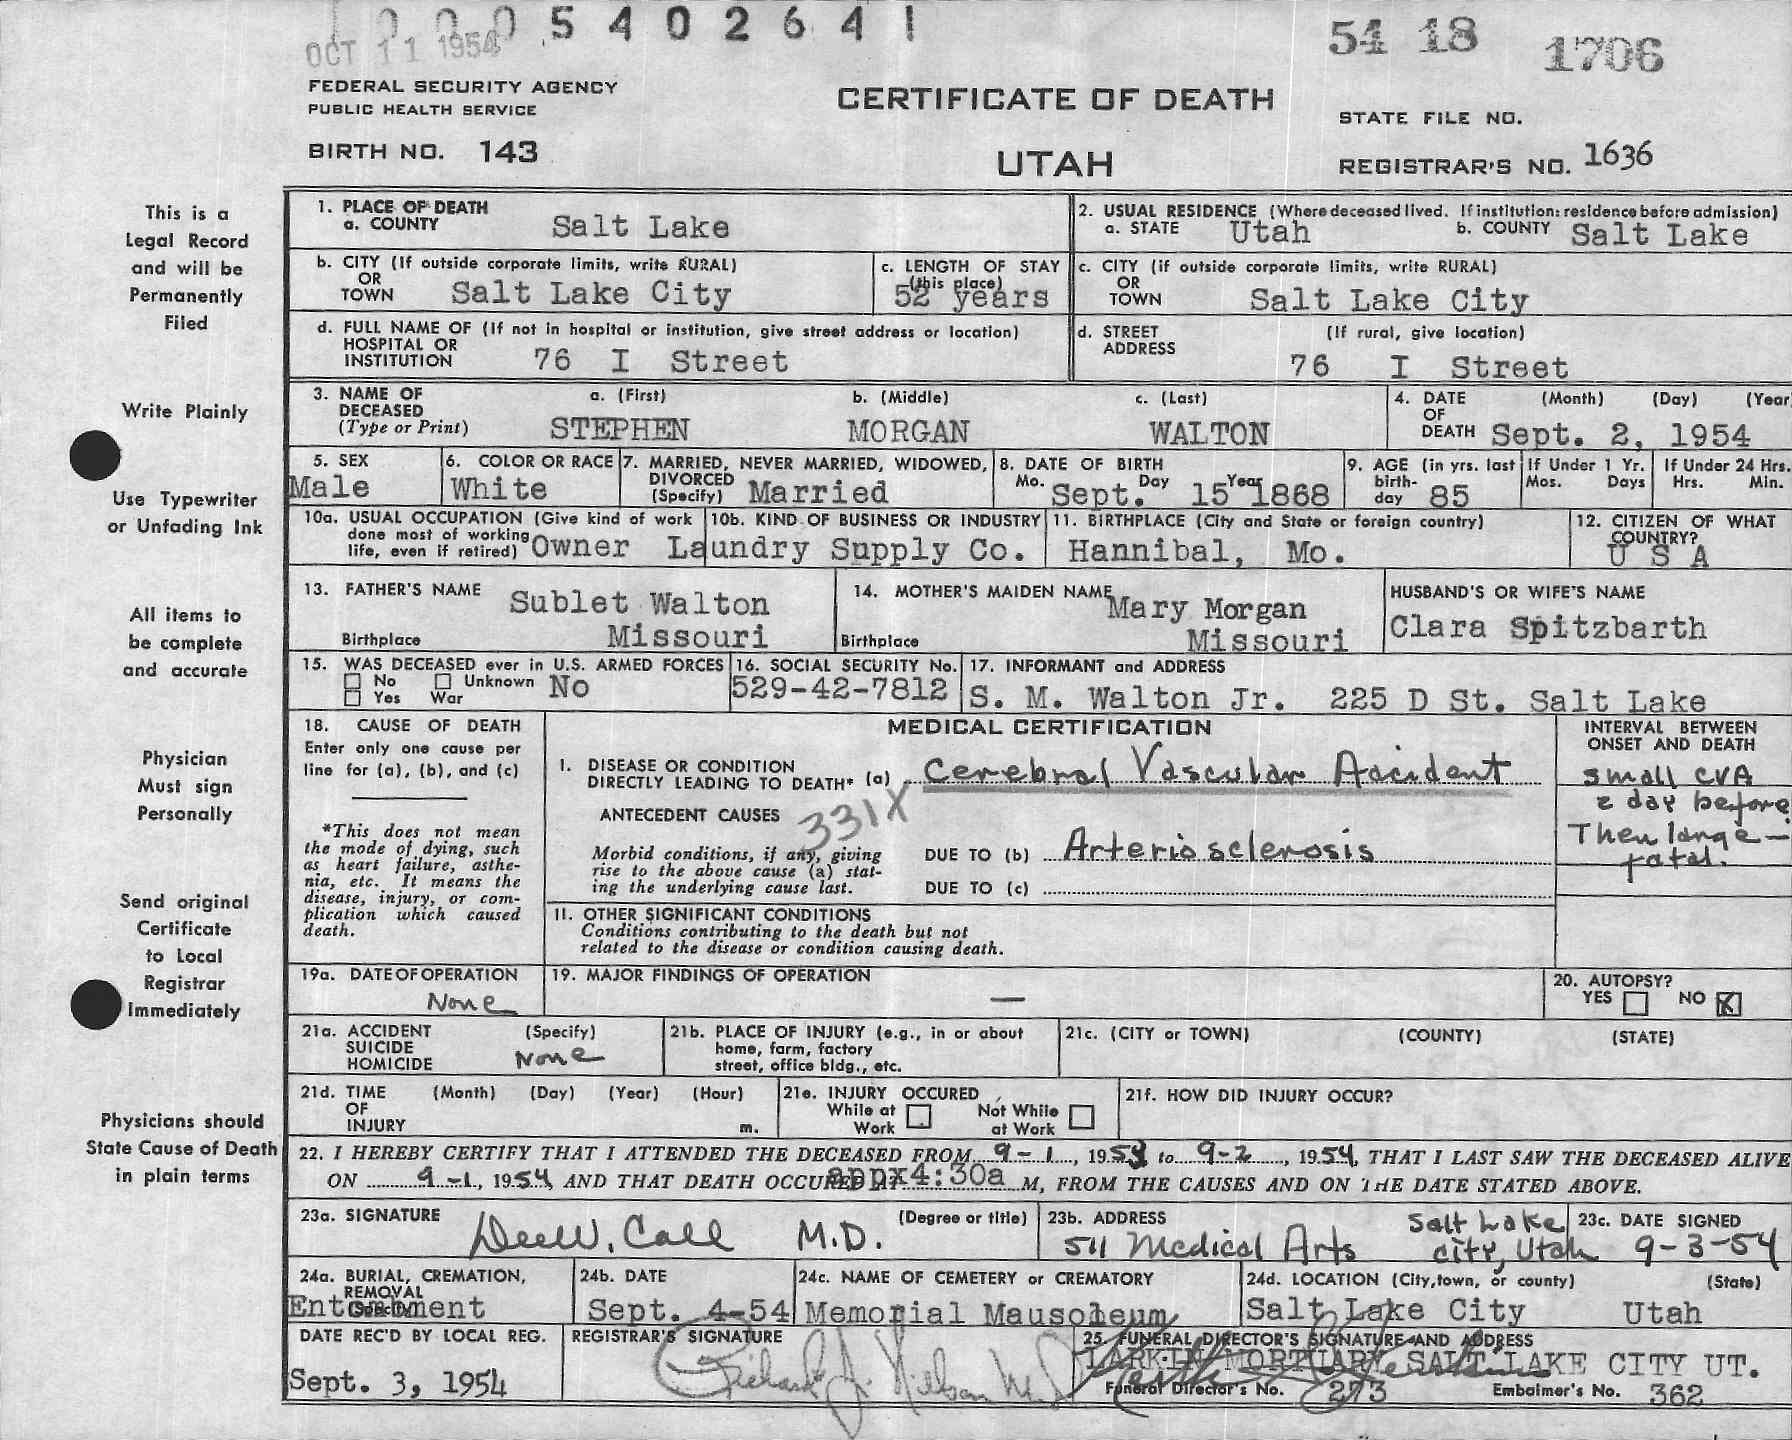 0 0 0 5 4 0 2 6 4 1
OCT 11 1954
54 18 1706
FEDERAL SECURITY AGENCY
PUBLIC HEALTH SERVICE
CERTIFICATE OF DEATH
STATE FILE NO.
BIRTH NO. 143
UTAH
REGISTRAR'S NO. 1636
This is a
Legal Record
and will be
Permanently
Filed
Write Plainly
Use Typewriter
or Unfading Ink
All items to
be complete
and accurate
Physician
Must sign
Personally
Send original
Certificate
to Local
Registrar
Immediately
Physicians should
State Cause of Death
in plain terms
1. PLACE OF DEATH
a. COUNTY Salt Lake
2. USUAL RESIDENCE (Where deceased lived. If institution: residence before admission)
a. STATE Utah b. COUNTY Salt Lake
b. CITY (If outside corporate limits, write RURAL)
OR
TOWN Salt Lake City
c. LENGTH OF STAY
(this place)
52 years
c. CITY (if outside corporate limits, write RURAL)
OR
TOWN Salt Lake City
d. FULL NAME OF (If not in hospital or institution, give street address or location)
HOSPITAL OR
INSTITUTION 76 I Street
d. STREET (If rural, give location)
ADDRESS
76 I Street
3. NAME OF a. (First) b. (Middle) c. (Last)
DECEASED
(Type or Print) STEPHEN MORGAN WALTON
4. DATE (Month) (Day) (Year
OF
DEATH Sept. 2, 1954
5. SEX
Male
6. COLOR OR RACE
White
7. MARRIED, NEVER MARRIED, WIDOWED,
DIVORCED
(Specify) Married
8. DATE OF BIRTH
Mo. Day Year
Sept. 15 1868
9. AGE (in yrs. last
birth-
day 85
If Under 1 Yr.
Mos. Days
If Under 24 Hrs.
Hrs. Min.
10a. USUAL OCCUPATION (Give kind of work
done most of working
life, even if retired) Owner
10b. KIND OF BUSINESS OR INDUSTRY
Laundry Supply Co.
11. BIRTHPLACE (City and State or foreign country)
Hannibal, Mo.
12. CITIZEN OF WHAT
COUNTRY?
U S A
13. FATHER'S NAME Sublet Walton
Birthplace Missouri
14. MOTHER'S MAIDEN NAME Mary Morgan
Birthplace Missouri
HUSBAND'S OR WIFE'S NAME
Clara Spitzbarth
15. WAS DECEASED ever in U.S. ARMED FORCES
No Unknown No
Yes War
16. SOCIAL SECURITY No.
529-42-7812
17. INFORMANT and ADDRESS
S. M. Walton Jr. 225 D St. Salt Lake
18. CAUSE OF DEATH
Enter only one cause per
line for (a), (b), and (c)
*This does not mean
the mode of dying, such
as heart failure, asthe-
nia, etc. It means the
disease, injury, or com-
plication which caused
death.
MEDICAL CERTIFICATION
I. DISEASE OR CONDITION
DIRECTLY LEADING TO DEATH* (a) Cerebral Vascular Accident
ANTECEDENT CAUSES 331X
Morbid conditions, if any, giving
rise to the above cause (a) stat-
ing the underlying cause last.
DUE TO (b) Arteriosclerosis
DUE TO (c)
II. OTHER SIGNIFICANT CONDITIONS
Conditions contributing to the death but not
related to the disease or condition causing death.
INTERVAL BETWEEN
ONSET AND DEATH
small CVA
2 day before
Then large -
fatal.
19a. DATE OF OPERATION
None
19. MAJOR FINDINGS OF OPERATION
—
20. AUTOPSY?
YES NO X
21a. ACCIDENT (Specify)
SUICIDE
HOMICIDE None
21b. PLACE OF INJURY (e.g., in or about
home, farm, factory
street, office bldg., etc.
21c. (CITY or TOWN) (COUNTY) (STATE)
21d. TIME (Month) (Day) (Year) (Hour)
OF
INJURY m.
21e. INJURY OCCURED
While at Work
Not While at Work
21f. HOW DID INJURY OCCUR?
22. I HEREBY CERTIFY THAT I ATTENDED THE DECEASED FROM 9-1, 1954, to 9-2, 1954, THAT I LAST SAW THE DECEASED ALIVE
ON 9-1, 1954, AND THAT DEATH OCCURED AT appx4:30a M, FROM THE CAUSES AND ON THE DATE STATED ABOVE.
23a. SIGNATURE (Degree or title)
Dee W. Call M.D.
23b. ADDRESS
511 Medical Arts Salt Lake
City, Utah
23c. DATE SIGNED
9-3-54
24a. BURIAL, CREMATION,
REMOVAL
(Specify)
Entombment
24b. DATE
Sept. 4-54
24c. NAME OF CEMETERY or CREMATORY
Memorial Mausoleum
24d. LOCATION (City, town, or county) (State)
Salt Lake City Utah
DATE REC'D BY LOCAL REG.
Sept. 3, 1954
REGISTRAR'S SIGNATURE
Richard J. Nelson M.D.
25. FUNERAL DIRECTOR'S SIGNATURE AND ADDRESS
LARKIN MORTUARY SALT LAKE CITY UT.
Funeral Director's No. 273 Embalmer's No. 362